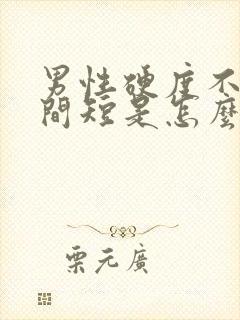 男性硬度不
間短是怎麼
栗元廣